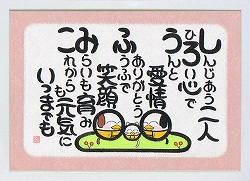 しんじあう二人
ひろい心で
うんと
愛情
ありがとう
ふうふで
笑顔
みらいも育み
これからも元気に
いつまでも